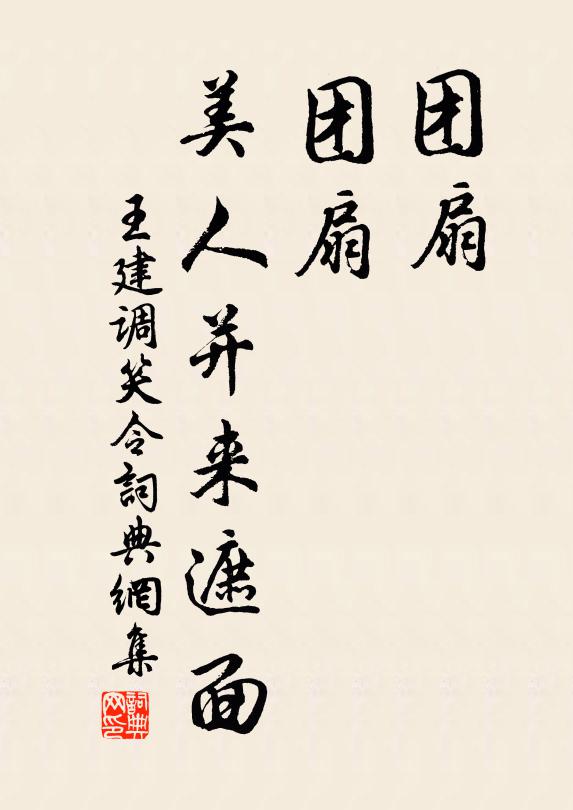 团扇
团扇
美人并来遮面
王建调笑令詞典網集
詞典网印